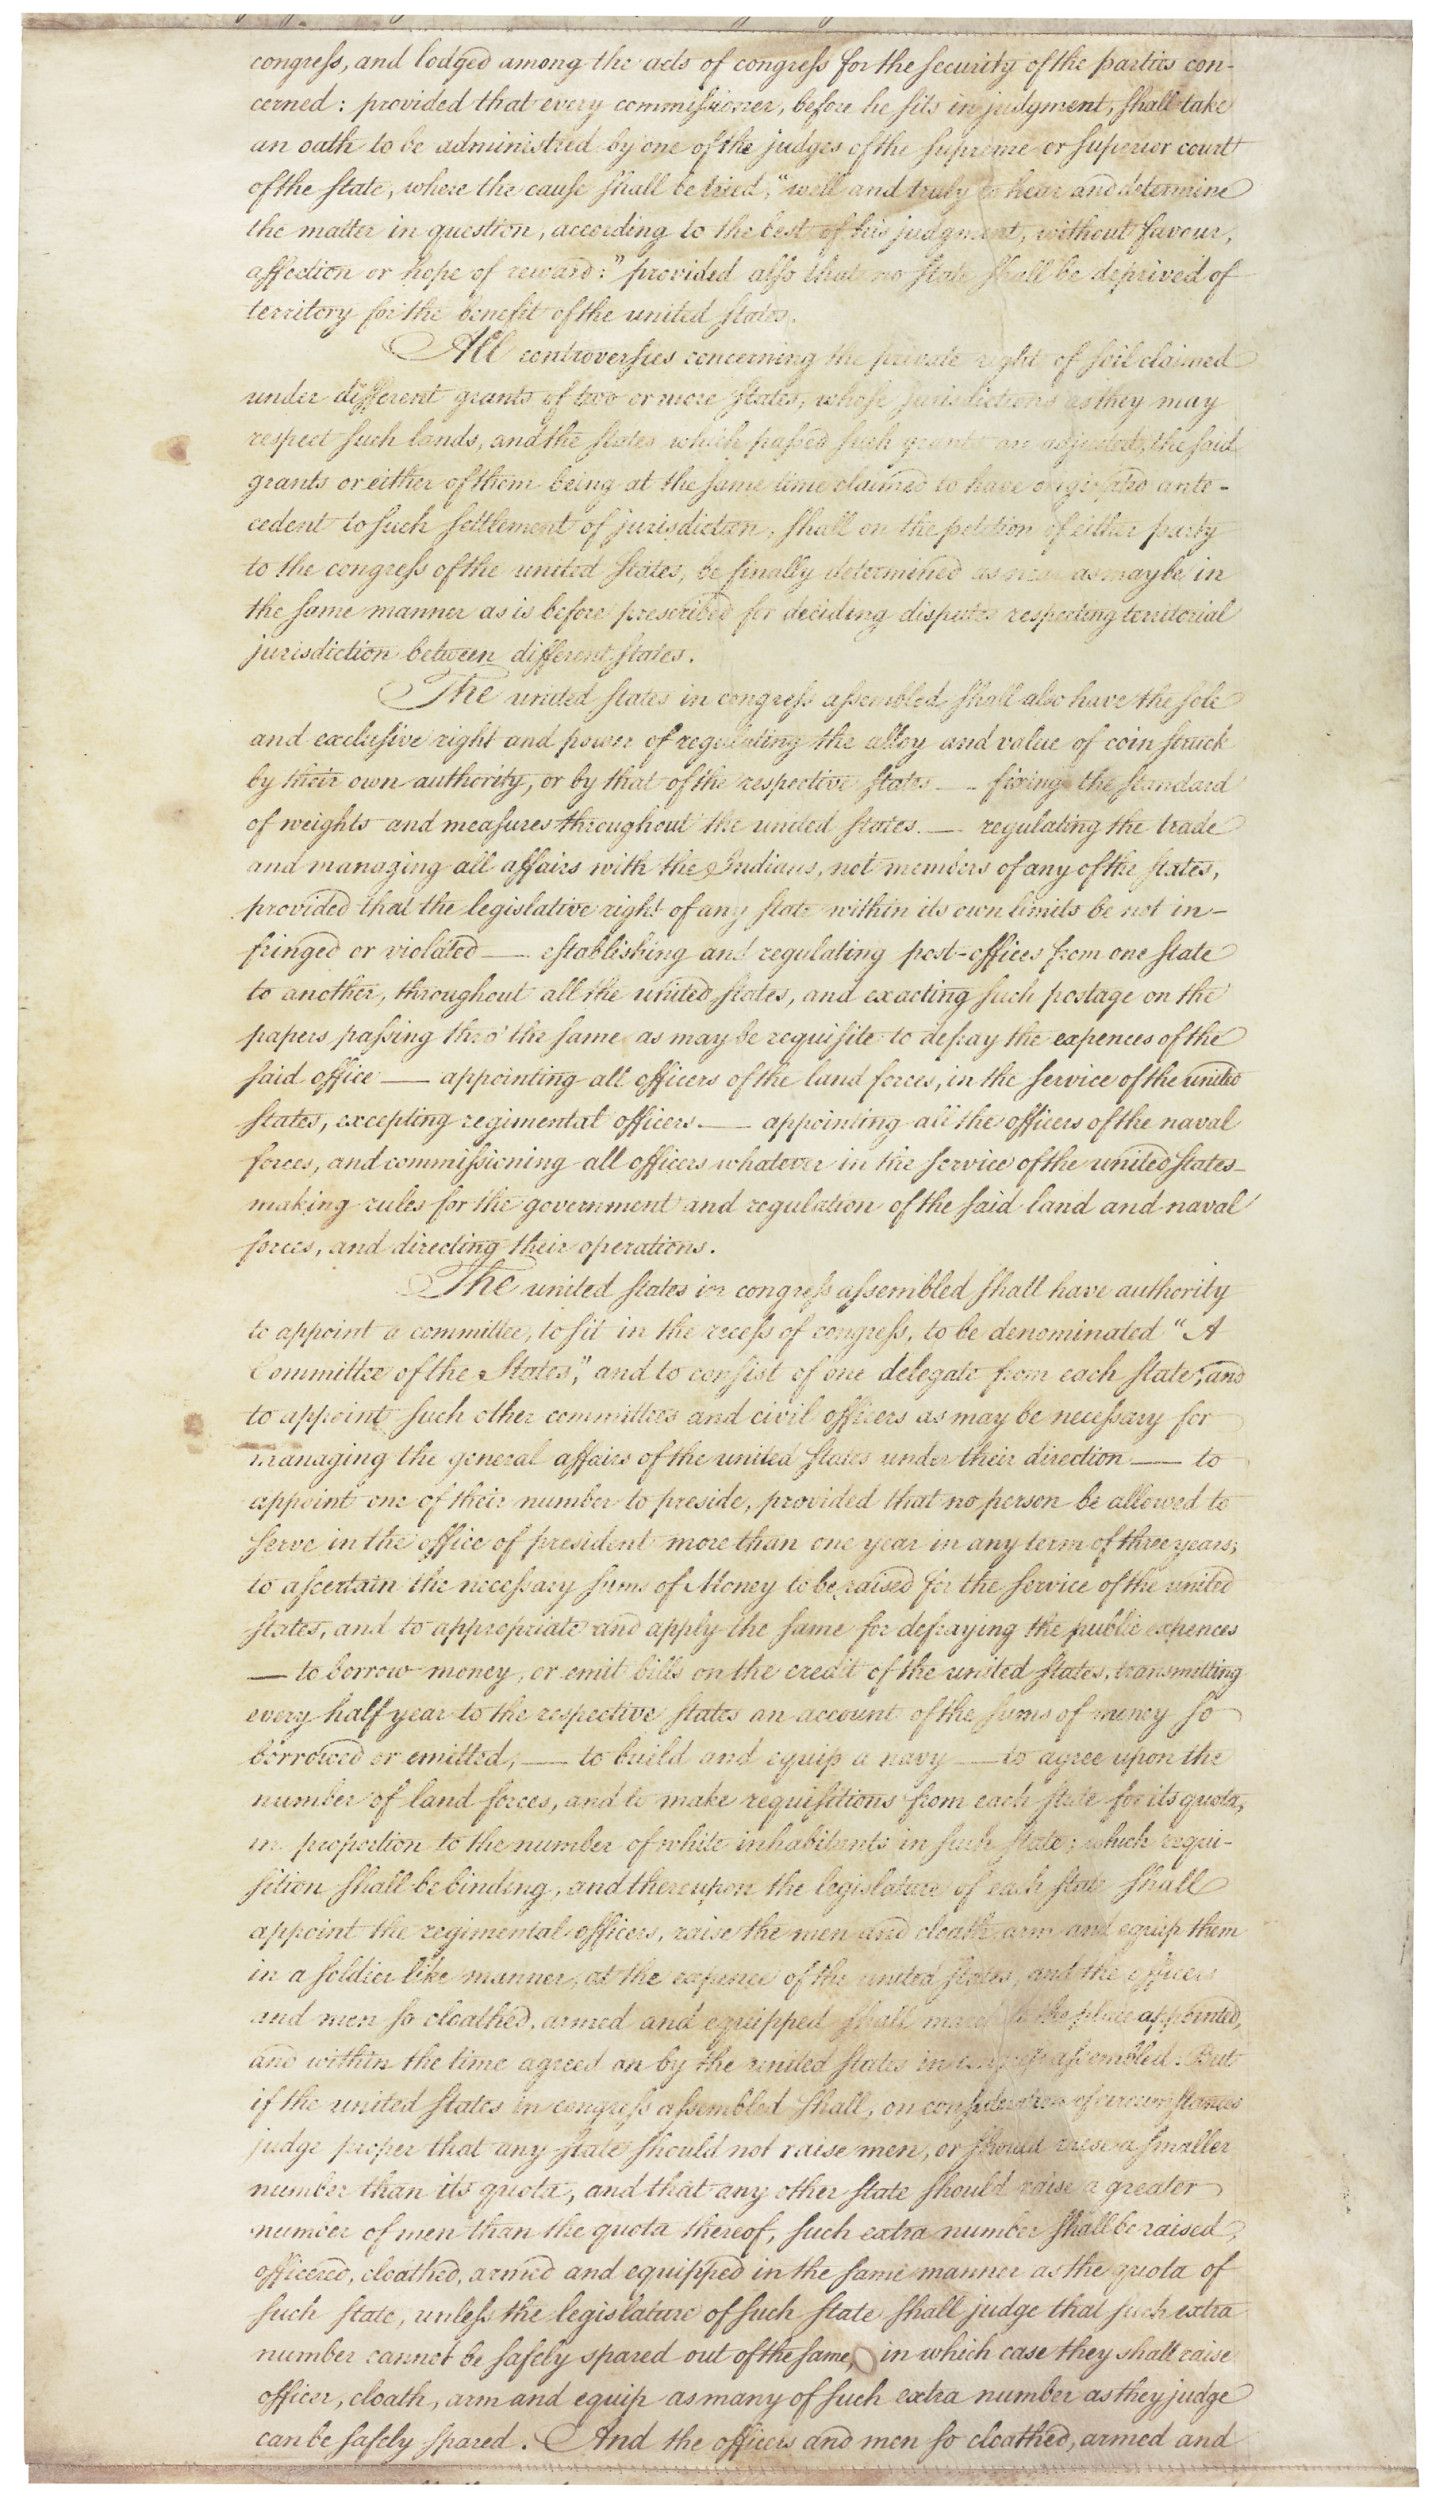 congress, and lodged among the acts of congress for the security of the parties con-
cerned: provided that every commissioner, before he sits in judgment, shall take
an oath to be administred by one of the judges of the supreme or superior court
of the state, where the cause shall be tried, "well and truly to hear and determine
the matter in question, according to the best of his judgment, without favour,
affection or hope of reward:" provided also that no state shall be deprived of
territory for the benefit of the united states.
All controversies concerning the private right of soil claimed
under different grants of two or more states, whose jurisdictions as they may
respect such lands, and the states which passed such grants are adjusted, the said
grants or either of them being at the same time claimed to have originated ante-
cedent to such settlement of jurisdiction, shall on the petition of either party
to the congress of the united states, be finally determined as near as may be in
the same manner as is before prescribed for deciding disputes respecting territorial
jurisdiction between different states.
The united states in congress assembled shall also have the sole
and exclusive right and power of regulating the alloy and value of coin struck
by their own authority, or by that of the respective states — fixing the standard
of weights and measures throughout the united states. — regulating the trade
and managing all affairs with the Indians, not members of any of the states,
provided that the legislative right of any state within its own limits be not in-
fringed or violated — establishing and regulating post-offices from one state
to another, throughout all the united states, and exacting such postage on the
papers passing thro' the same as may be requisite to defray the expences of the
said office — appointing all officers of the land forces, in the service of the united
states, excepting regimental officers. — appointing all the officers of the naval
forces, and commissioning all officers whatever in the service of the united states —
making rules for the government and regulation of the said land and naval
forces, and directing their operations.
The united states in congress assembled shall have authority
to appoint a committee, to sit in the recess of congress, to be denominated "A
Committee of the States", and to consist of one delegate from each state; and
to appoint such other committees and civil officers as may be necessary for
managing the general affairs of the united states under their direction — to
appoint one of their number to preside, provided that no person be allowed to
serve in the office of president more than one year in any term of three years;
to ascertain the necessary sums of Money to be raised for the service of the united
states, and to appropriate and apply the same for defraying the public expences
— to borrow money, or emit bills on the credit of the united states, transmitting
every half year to the respective states an account of the sums of money so
borrowed or emitted, — to build and equip a navy — to agree upon the
number of land forces, and to make requisitions from each state for its quota,
in proportion to the number of white inhabitants in such state; which requi-
sition shall be binding, and thereupon the legislature of each state shall
appoint the regimental officers, raise the men and cloath, arm and equip them
in a soldier like manner, at the expence of the united states, and the officers
and men so cloathed, armed and equipped shall march to the place appointed,
and within the time agreed on by the united states in congress assembled: But
if the united states in congress assembled shall, on consideration of circumstances
judge proper that any state should not raise men, or should raise a smaller
number than its quota, and that any other state should raise a greater
number of men than the quota thereof, such extra number shall be raised,
officered, cloathed, armed and equipped in the same manner as the quota of
such state, unless the legislature of such state shall judge that such extra
number cannot be safely spared out of the same, in which case they shall raise
officer, cloath, arm and equip as many of such extra number as they judge
can be safely spared. And the officers and men so cloathed, armed and